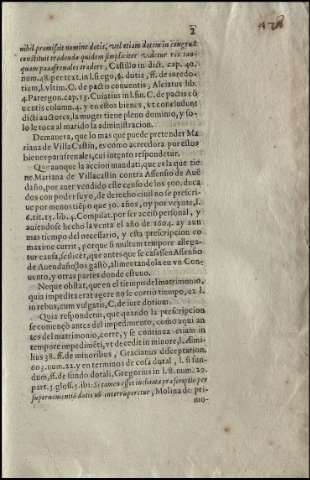 2
nihil promissit nomine dotis, vel etiam dotem in congrua
constituit tradenda quidem simpliciter valetur res tan-
quam paraafrenales tradere, Castillo in dict. cap. 40.
num. 48. per text. in l. si ego, §. dotis, ff. de iure do-
tium, l. vltim. C. de pactis conuentis, Alciatus lib.
4. Parergon. cap. 13. Cuiatius in l. fin. C. de pactis cō-
uentis column. 4. y en estos bienes, vt concludunt
dicti auctores, la muger tiene pleno dominio, y so-
lo le toca al marido la administracion.
Demanera, que lo mas que puede pretender Ma-
riana de Villa Castin, es como acreedora por estos
bienes parafrenales, cui intento respondetur.
Que aunque la accion mandati, que es la que tie-
ne Mariana de Villacastin contra Assensio de Auē
daño, por auer vendido este censo de los 900. duca-
dos con poder suyo, de derecho ciuil no se prescri-
ue por menos tiēpo que 30. años, oy por veynte, l.
6. tit. 15. lib. 4. Compilat. por ser actiō personal, y
auiendose hecho la venta el año de 1604. ay aun
mas tiempo del necessario, y esta prescripcion co
maxime currit, porque si multum tempore allega-
tur causa, scilicèt, que antes que se casasse Assensio
de Auendaño, los gastò, alimentandola en vn Con-
uento, y otras partes donde estuuo.
Neque obstat, que en el tiempo del matrimonio,
quia impedita erat agere no se corriò tiempo, ex l.
in rebus, cum vulgatis, C. de iure dotium.
Quia respondetur, que quando la prescripcion
se començò antes del impedimento, como aqui an
tes del matrimonio, corre, y se continua etiam in
tempore impedimēti, vt decedit in minore, l. Æmi-
lius 38. ff. de minoribus, Gracianus disceptation.
603. num. 22. y en terminos de cosa dotal, l. si fun-
dum, ff. de fundo dotali, Gregorius in l. 8. num. 29.
part. 3. gloss. 5. ibi: Si tamen esset inchoata præscriptio per
superuenientiā dotis nō interrumpetur, Molina de pri-
mo-